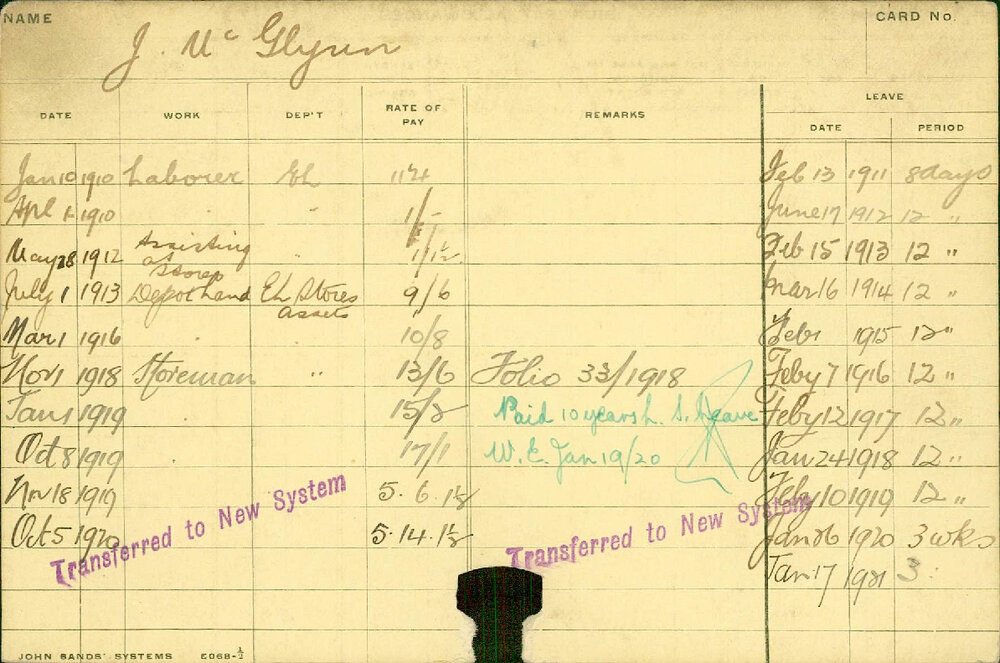 NAME
CARD No.
J. Mc Glynn
DATE WORK DEP'T RATE OF PAY REMARKS LEAVE
DATE PERIOD
Jan 10 1910 Laborer EL Feb 13 1911 8 days
Apl 1 1910 " 1/- June 17 1912 12 "
May 28 1912 Assisting at Stores " 1/1½ Feb 15 1913 12 "
July 1 1913 Depot hand EL Stores assets 9/6 Mar 16 1914 12 "
Mar 1 1916 " 10/8 Feb 1 1915 12 "
Nov 1 1918 Storeman " 13/6 Folio 33/1918 Feby 7 1916 12 "
Jan 1 1919 " 15/2 Paid 10 years L. S. Leave Feby 12 1917 12 "
Oct 8 1919 " 17/1 W. E. Jan 19/20 Jan 24 1918 12 "
Nov 18 1919 5. 6. 1½ Feby 10 1919 12 "
Oct 5 1920 5. 14. 1½ Jan 26 1920 3 wks
Transferred to New System
Transferred to New System
Jan 17 1921 3 "
JOHN SANDS' SYSTEMS E068-½